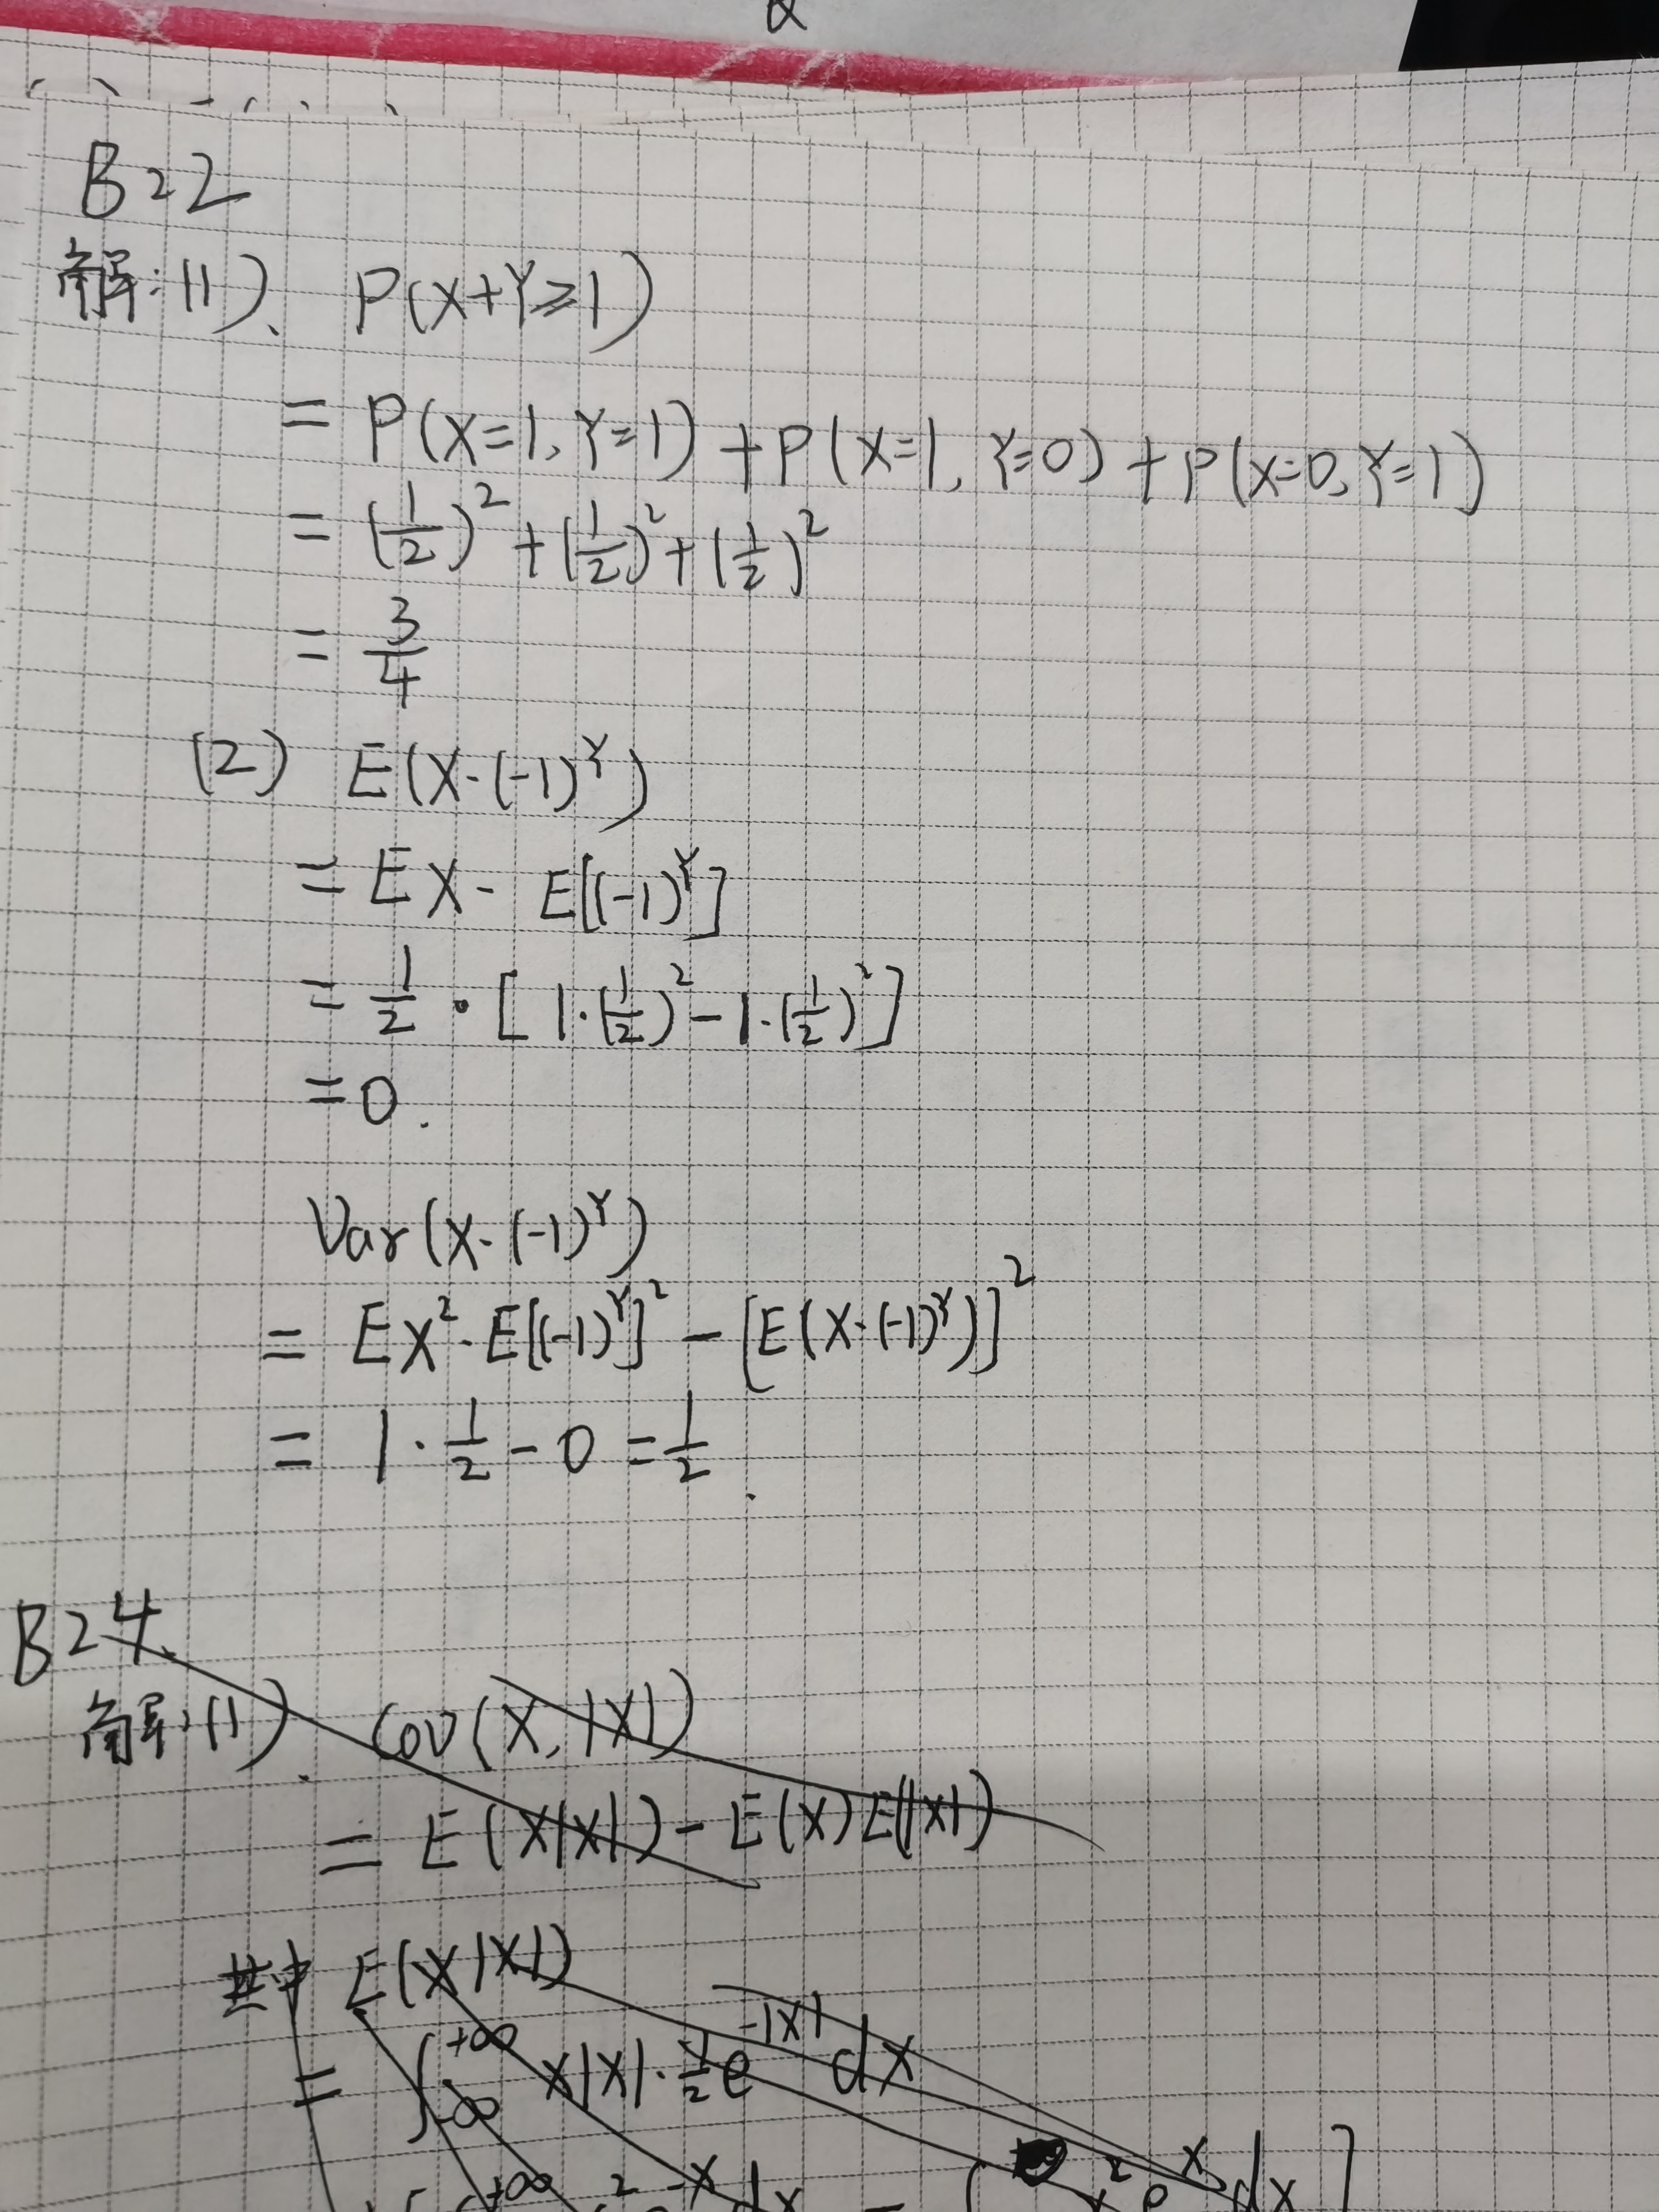 B22
解:(1)、 P(X+Y≥1)
= P(X=1,Y=1)+P(X=1,Y=0)+P(X=0,Y=1)
= (1/2)² + (1/2)² + (1/2)²
= 3/4
(2) E(X·(-1)^Y)
= EX· E[(-1)^Y]
= 1/2 · [1·(1/2)² - 1·(1/2)²]
= 0.
Var(X·(-1)^Y)
= EX²·E[(-1)^Y]² - [E(X·(-1)^Y)]²
= 1·1/2 - 0 = 1/2.
B24.
解:(1). Cov(X,|X|)
= E(X|X|) - E(X)E(|X|)
其中 E(X|X|)
= ∫_{-∞}^{+∞} x|x|·1/2 e^{-|x|} dx